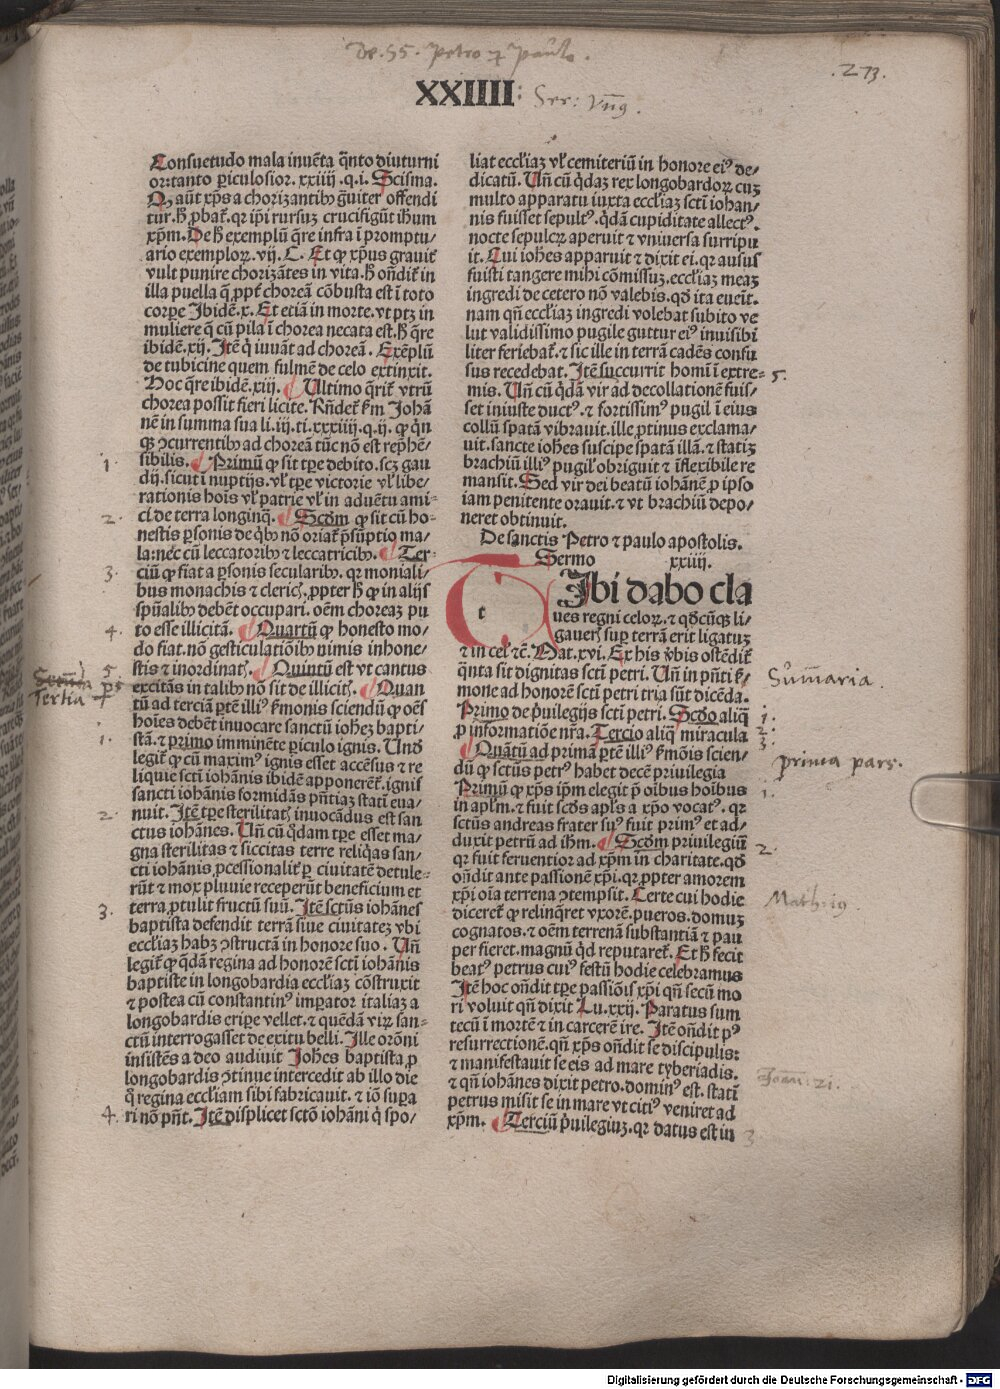 De. SS. Petro et Paulo.
.273.
XXIIII: Ser:
Consuetudo mala inuẽta q̃nto diuturni
or: tanto ꝑiculosior. xxiiij .q.i. Scisma.
Qꝫ aũt xp̃s a chorizantibꝰ g̃uiter offendi
tur. h̃ ꝓbat᷑. qꝛ ip̃i rursuꝫ crucifigũt ih̃um
xp̃m. De h̃ exemplũ q̃re infra ĩ promptu⸗
ario exemploꝝ. vij. C. Et ꝙ xp̃us grauit᷑
vult punire chorizãtes in vita. h̃ oñdit᷑ in
illa puella q̃ ꝓpt᷑ choreã cõbusta est ĩ toto
corꝑe Ibidẽ. x. Et eciã in morte. vt ptꝫ in
muliere q̃ cũ pila ĩ chorea necata est. h̃ q̃re
ibidẽ. xij. Itẽ q̇ iuuãt ad choreã. Exẽplũ
de tubicine quem fulmẽ de celo extinxit.
Hoc q̃re ibidẽ. xiij. Ultimo q̃rit᷑ vtrũ
chorea possit fieri licite. Rñdet᷑ ẜm Johã
nẽ in summa sua li. iij. ti. xxxiiij. q. ij. ꝙ q̇n
qꝫ ↄcurrentibꝰ ad choreã tũc nõ est rep̃hẽ⸗
sibilis. Primũ ꝙ sit tꝑe debito. scꝫ gau
dij. sicut ĩ nuptijs. vl᷑ tꝑe victorie vl᷑ libe⸗
rationis hoĩs vl᷑ patrie vl᷑ in aduẽtu ami⸗
ci de terra longinq̃. Scd̃m ꝙ sit cũ ho⸗
nestis ꝑsonis de q̇bꝰ nõ oriat᷑ p̃sũptio ma⸗
la: nec cũ leccatoribꝰ et leccatricibꝰ. Ter⸗
ciũ ꝙ fiat a ꝑsonis secularibꝰ. qꝛ moniali⸗
bus monachis et clericꝭ. ꝓpter h̃ ꝙ in alijs
sp̃ualibꝰ debẽt occupari. oẽm choreaꝫ pu
to esse illicitã. Quartũ ꝙ honesto mo⸗
do fiat. nõ gesticulatiõibꝰ nimis inhone⸗
stis et inordinatꝭ. Quintũ est vt cantus
excitãs in talibꝰ nõ sit de illicitꝭ. Quan
tũ ad terciã ꝑtẽ illiꝰ ẜmonis sciendũ ꝙ oẽs
hoĩes debẽt inuocare sanctũ ioh̃eꝫ bapti⸗
stã. et primo imminẽte ꝑiculo ignis. Und̃
legit᷑ ꝙ cũ maximꝰ ignis esset accẽsus et re
liquie sctĩ iohãnis ibidẽ apponerẽt᷑. ignis
sancti iohãnis formidãs pñtiaꝫ statĩ eua⸗
nuit. Itẽ tꝑe sterilitatꝭ inuocãdus est san
ctus iohãnes. Uñ cũ q̇dam tꝑe esset ma⸗
gna sterilitas et siccitas terre reliq̇as san⸗
cti iohãnis ꝓcessionalit᷑ ꝑ ciuitatẽ detule⸗
rũt et mox pluuie receperũt beneficium et
terra ꝓtulit fructũ suũ. Itẽ sctũs iohãnes
baptista defendit terrã siue ciuitateꝫ vbi
eccl᷑iaꝫ habꝫ ↄstructã in honore suo. Uñ
legit᷑ ꝙ q̇dã regina ad honorẽ sctĩ iohãnis
baptiste in longobardia eccl᷑iaꝫ cõstruxit
et postea cũ constantinꝰ imꝑator italiaꝫ a
longobardis eriꝑe vellet. et quẽdã viꝝ san⸗
ctũ interrogasset de exitu belli. Ille orõni
insistẽs a deo audiuit Joh̃es baptista ꝓ
longobardis ↄtinue intercedit ab illo die
q̊ regina eccl᷑iam sibi fabricauit. et iõ supa
ri nõ pñt. Itẽ displicet sctõ iohãni q̇ spo⸗
liat eccl᷑iaꝫ vl᷑ cemiteriũ in honore eiꝰ de⸗
dicatũ. Uñ cũ q̇daꝫ rex longobardoꝝ cuꝫ
multo apparatu iuxta eccl᷑iaꝫ sctĩ iohan⸗
nis fuisset sepultꝰ. q̇dã cupiditate allectꝰ.
nocte sepulcꝝ aperuit et vniuersa surripu
it. Cui ioh̃es apparuit et dixit ei. qꝛ ausus
fuisti tangere mihi cõmissuꝫ. eccl᷑iaꝫ meaꝫ
ingredi de cetero nõ valebis. qd̃ ita eueĩt.
nam qñ eccl᷑iaꝫ ingredi volebat subito ve
lut validissimo pugile guttur eiꝰ inuisibi
liter feriebat᷑. et sic ille in terrã cadẽs confu
sus recedebat. Itẽ succurrit homĩ ĩ extre⸗
mis. Uñ cũ q̇dã vir ad decollationẽ fuis⸗
set iniuste ductꝰ. et fortissimꝰ pugil ĩ eius
collũ spatã vibrauit. ille ꝓtinus exclama⸗
uit. sancte ioh̃es suscipe spatã illã. et statiꝫ
brachiũ illiꝰ pugil᷑ obriguit et iflexibile re
mansit. Sed vir dei beatũ iohãnẽ ꝓ ipso
iam penitente orauit. et vt brachiũ depo⸗
neret obtinuit.
De sanctis Petro et paulo apostolis.
Sermo xxiiij.
t
Tibi dabo cla
ues regni celoꝝ. et qd̃cũqꝫ li⸗
gauerꝭ suꝑ terrã erit ligatuꝫ
et in cel᷑ etc̃. Mat. xvi. Ex his v̾bis ostẽdit᷑
q̃nta sit dignitas sctĩ petri. Uñ in pñti ẜ⸗
mone ad honorẽ sctĩ petri tria sũt dicẽda.
Primo de ṗuilegijs sctĩ petri. Scd̃o aliq̃
ꝓ informatiõe nr̃a. Tercio aliq̃ miracula
Quãtũ ad primã ꝑtẽ illiꝰ ẜmõis scien⸗
dũ ꝙ sctũs petrꝰ habet decẽ priuilegia
Primũ ꝙ xp̃s ip̃m elegit p̃ oĩbus hoĩbus
in apl᷑m. et fuit scd̃s apl᷑s a xp̃o vocatꝰ. qꝛ
sctũs andreas frater suꝰ fuit primꝰ et ad⸗
duxit petrũ ad ih̃m. Scd̃m priuilegiũ
qꝛ fuit feruentior ad xp̃m in charitate. qd̃
oñdit ante passionẽ xp̃i. qꝛ ꝓpter amorem
xp̃i oĩa terrena ↄtempsit. Certe cui hodie
diceret᷑ ꝙ relinq̃ret vxorẽ. pueros. domuꝫ
cognatos. et oẽm terrenã substantiã et pau
per fieret. magnũ q̇d reputaret᷑. Et h̃ fecit
beatꝰ petrus cuiꝰ festũ hodie celebramus
Itẽ hoc oñdit tꝑe passiõis xp̃i qñ secũ mo
ri voluit qñ dixit Lu. xxij. Paratus sum
tecũ ĩ mortẽ et in carcerẽ ire. Itẽ oñdit pꝰ
resurrectionẽ. qñ xp̃s oñdit se discipulis:
et manifestauit se eis ad mare tyberiadis.
et qñ iohãnes dixit petro. dominꝰ est. statĩ
petrus misit se in mare vt citiꝰ veniret ad
xp̃m. Terciũ ṗuilegiuꝫ. qꝛ datus est in
1.
2.
3.
4.
5
Tertia ps
1.
2.
3.
4.
5.
Sum̃aria.
1.
2.
3.
prima pars.
1.
2.
Math: 19.
Joan: 21.
3
Digitalisierung gefördert durch die Deutsche Forschungsgemeinschaft - DFG